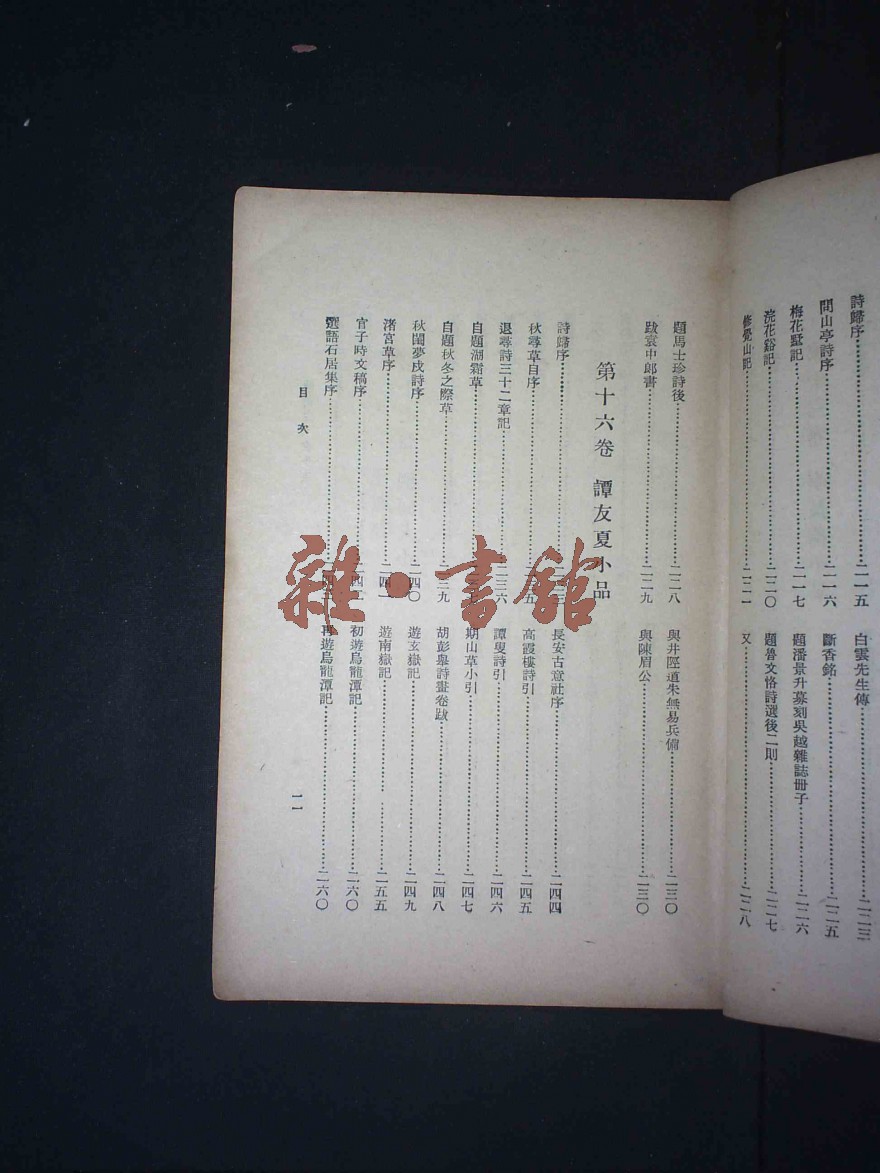 詩歸序……二一五
問山亭詩序……二一六
梅花墅記……二一七
浣花谿記……二二〇
修覺山記……二二一
白雲先生傳……二二三
斷香銘……二二五
題潘景升募刻吳越雜誌冊子……二二六
題魯文恪詩選後二則……二二七
又……二二八
題馬士珍詩後……二二八
跋袁中郎書……二二九
與井陘道朱無易兵備……二三〇
與陳眉公……二三〇
第十六卷 譚友夏小品
詩歸序
秋尋草自序
退尋詩三十二章記……二三六
自題湖霜草
自題秋冬之際草
秋閨夢戍詩序……二四〇
渚宮草序……二四一
官子時文稿序
選語石居集序
長安古意社序……二四四
高霞樓詩引……二四五
譚叟詩引……二四六
期山草小引……二四七
胡彭舉詩畫卷跋……二四八
遊玄嶽記……二四九
遊南嶽記……二五五
初遊烏龍潭記……二六〇
再遊烏龍潭記……二六〇
目次
一一
雜·書館